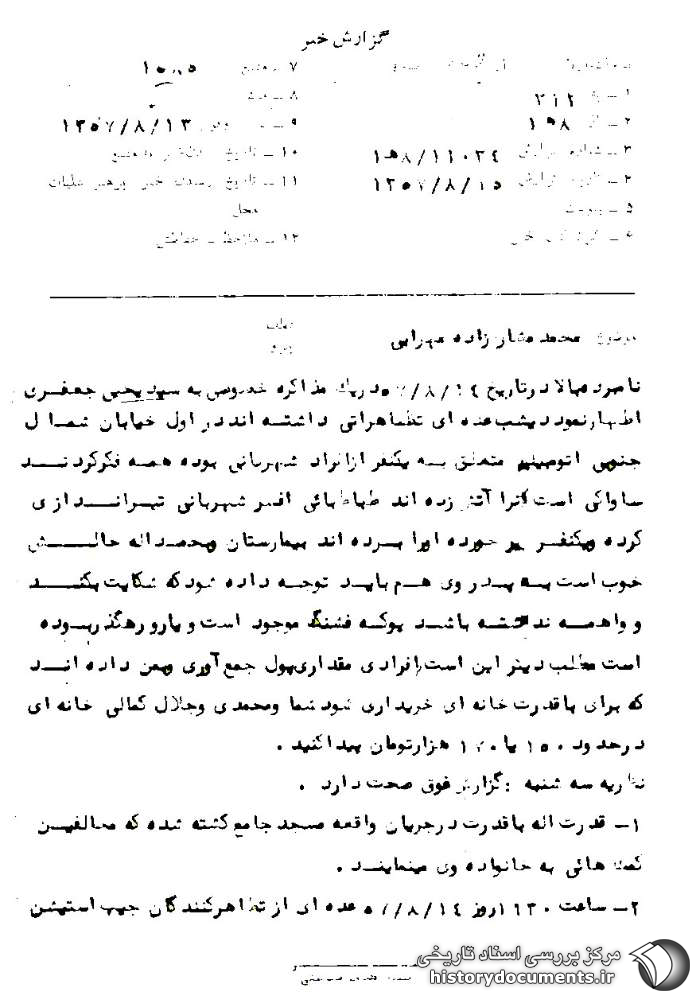 گزارش خبر
۷ - منبع ۱۵۸۵
۱ - ۳۱۲
۸ -
۲ - ۱ه۸
۹ - ۱۳۵۷/۸/۱۳
۳ - شماره گزارش ۱ه۸/۱۱۰۳۴
۱۰ - تاریخ
۱۳۵۷/۸/۱۵
۱۱ - تاریخ رسیدن خبر برهبر عملیات
محل
۵ - پیوست
۱۲ - ملاحظات حفاظتی
موضوع محمد منشار زاده مهرابی
نامبرده بالا در تاریخ ۵۷/۸/۱۴ در یک مذاکره خصوصی به سید یحیی جعفری
اظهار نمود دیشب عده ای تظاهراتی داشته اند در اول خیابان شمال
جنوبی اتومبیلی متعلق به یکنفر از افراد شهربانی بوده همه فکر کردند
ساواکی است آنرا آتش زده اند طباطبائی افسر شهربانی تیراندازی
کرده و یکنفر تیر خورده او را برده اند بیمارستان و بحمدالله حالش
خوب است به پدر وی هم باید توجه داده شود که شکایت بکند
و واهمه نداشته باشد پوکه فشنگ موجود است و یارو رهگذر بوده
است مطلب دیگر این است افرادی مقداری پول جمع آوری و بمن داده اند
که برای باقدرت خانه ای خریداری شود شما و محمدی و جلال کمالی خانه ای
در حدود ۱۵۰ یا ۱۷۰ هزار تومان پیدا کنید .
نظریه سه شنبه : گزارش فوق صحت دارد .
۱- قدرت اله باقدرت در جریان واقعه مسجد جامع کشته شده که مخالفین
کمک هائی به خانواده وی مینمایند .
۲- ساعت ۱۶۳۰ روز ۵۷/۸/۱۴ عده ای از تظاهرکنندگان جیپ استیشن
مرکز بررسی اسناد تاریخی
historydocuments.ir